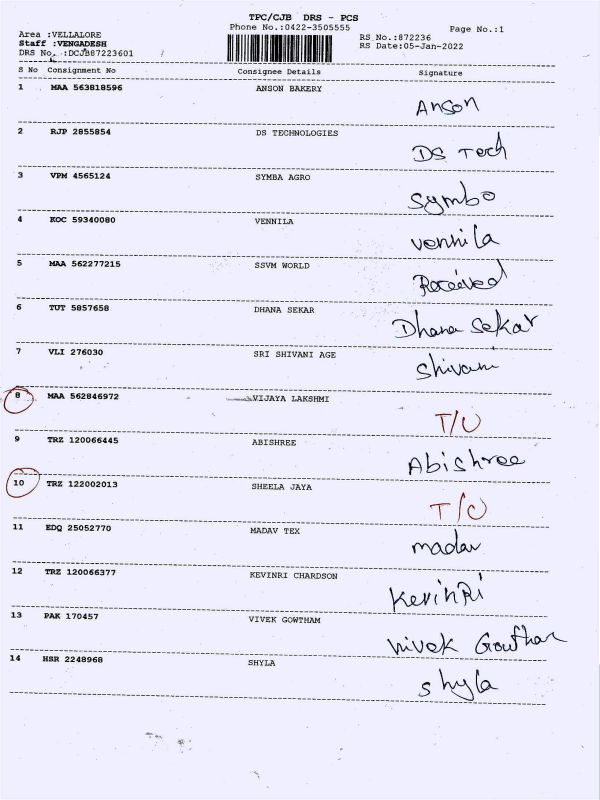 TPC/CJB DRS - PCS
Phone No.:0422-3505555 Page No.:1
Area :VELLALORE RS No.:872236
Staff :VENGADESH RS Date:05-Jan-2022
DRS No. :DCJB87223601
S No Consignment No Consignee Details Signature
1 MAA 563818596 ANSON BAKERY
Anson
2 RJP 2855854 DS TECHNOLOGIES
DS Tech
3 VPM 4565124 SYMBA AGRO
Symbo
4 KOC 59340080 VENNILA
vennila
5 MAA 562277215 SSVM WORLD
Received
6 TUT 5857658 DHANA SEKAR
Dhana Sekar
7 VLI 276030 SRI SHIVANI AGE
Shivani
8 MAA 562846972 VIJAYA LAKSHMI
T/U
9 TRZ 120066445 ABISHREE
Abishree
10 TRZ 122002013 SHEELA JAYA
T/O
11 EDQ 25052770 MADAV TEX
madav
12 TRZ 120066377 KEVINRI CHARDSON
KevinRi
13 PAK 170457 VIVEK GOWTHAM
vivek Gowtham
14 HSR 2248968 SHYLA
Shyla